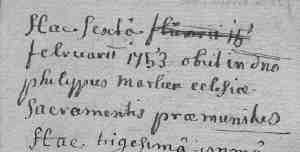 Hac sextâ
februarii 1753 obiit in dno
philippus marlier eclesiæ
sacramentis præmunitus
Hac trigesimâ